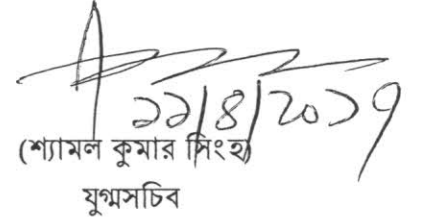 ১১/৪/২০১৭
(শ্যামল কুমার সিংহ)
যুগ্মসচিব